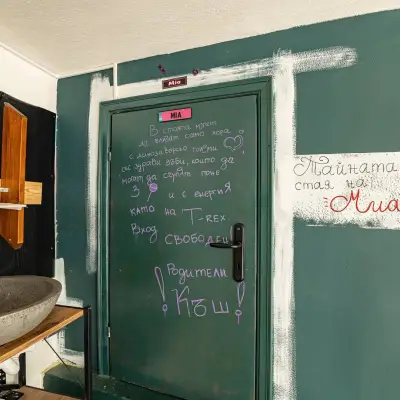 Mia
MIA
В стаята могат
да влизат само хора
с динозавърско
със здрави зъби, които да
могат да сдъвчат поне
3 и с енергия
като на T-REX
Вход СВОБОДЕН
Родители
! Къш!
Тайната
стая на
Миа